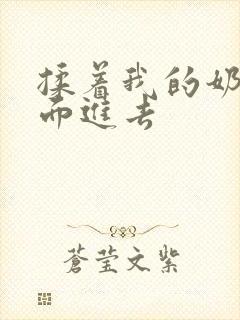 揉着我的奶
而进去
蒼莹文紫